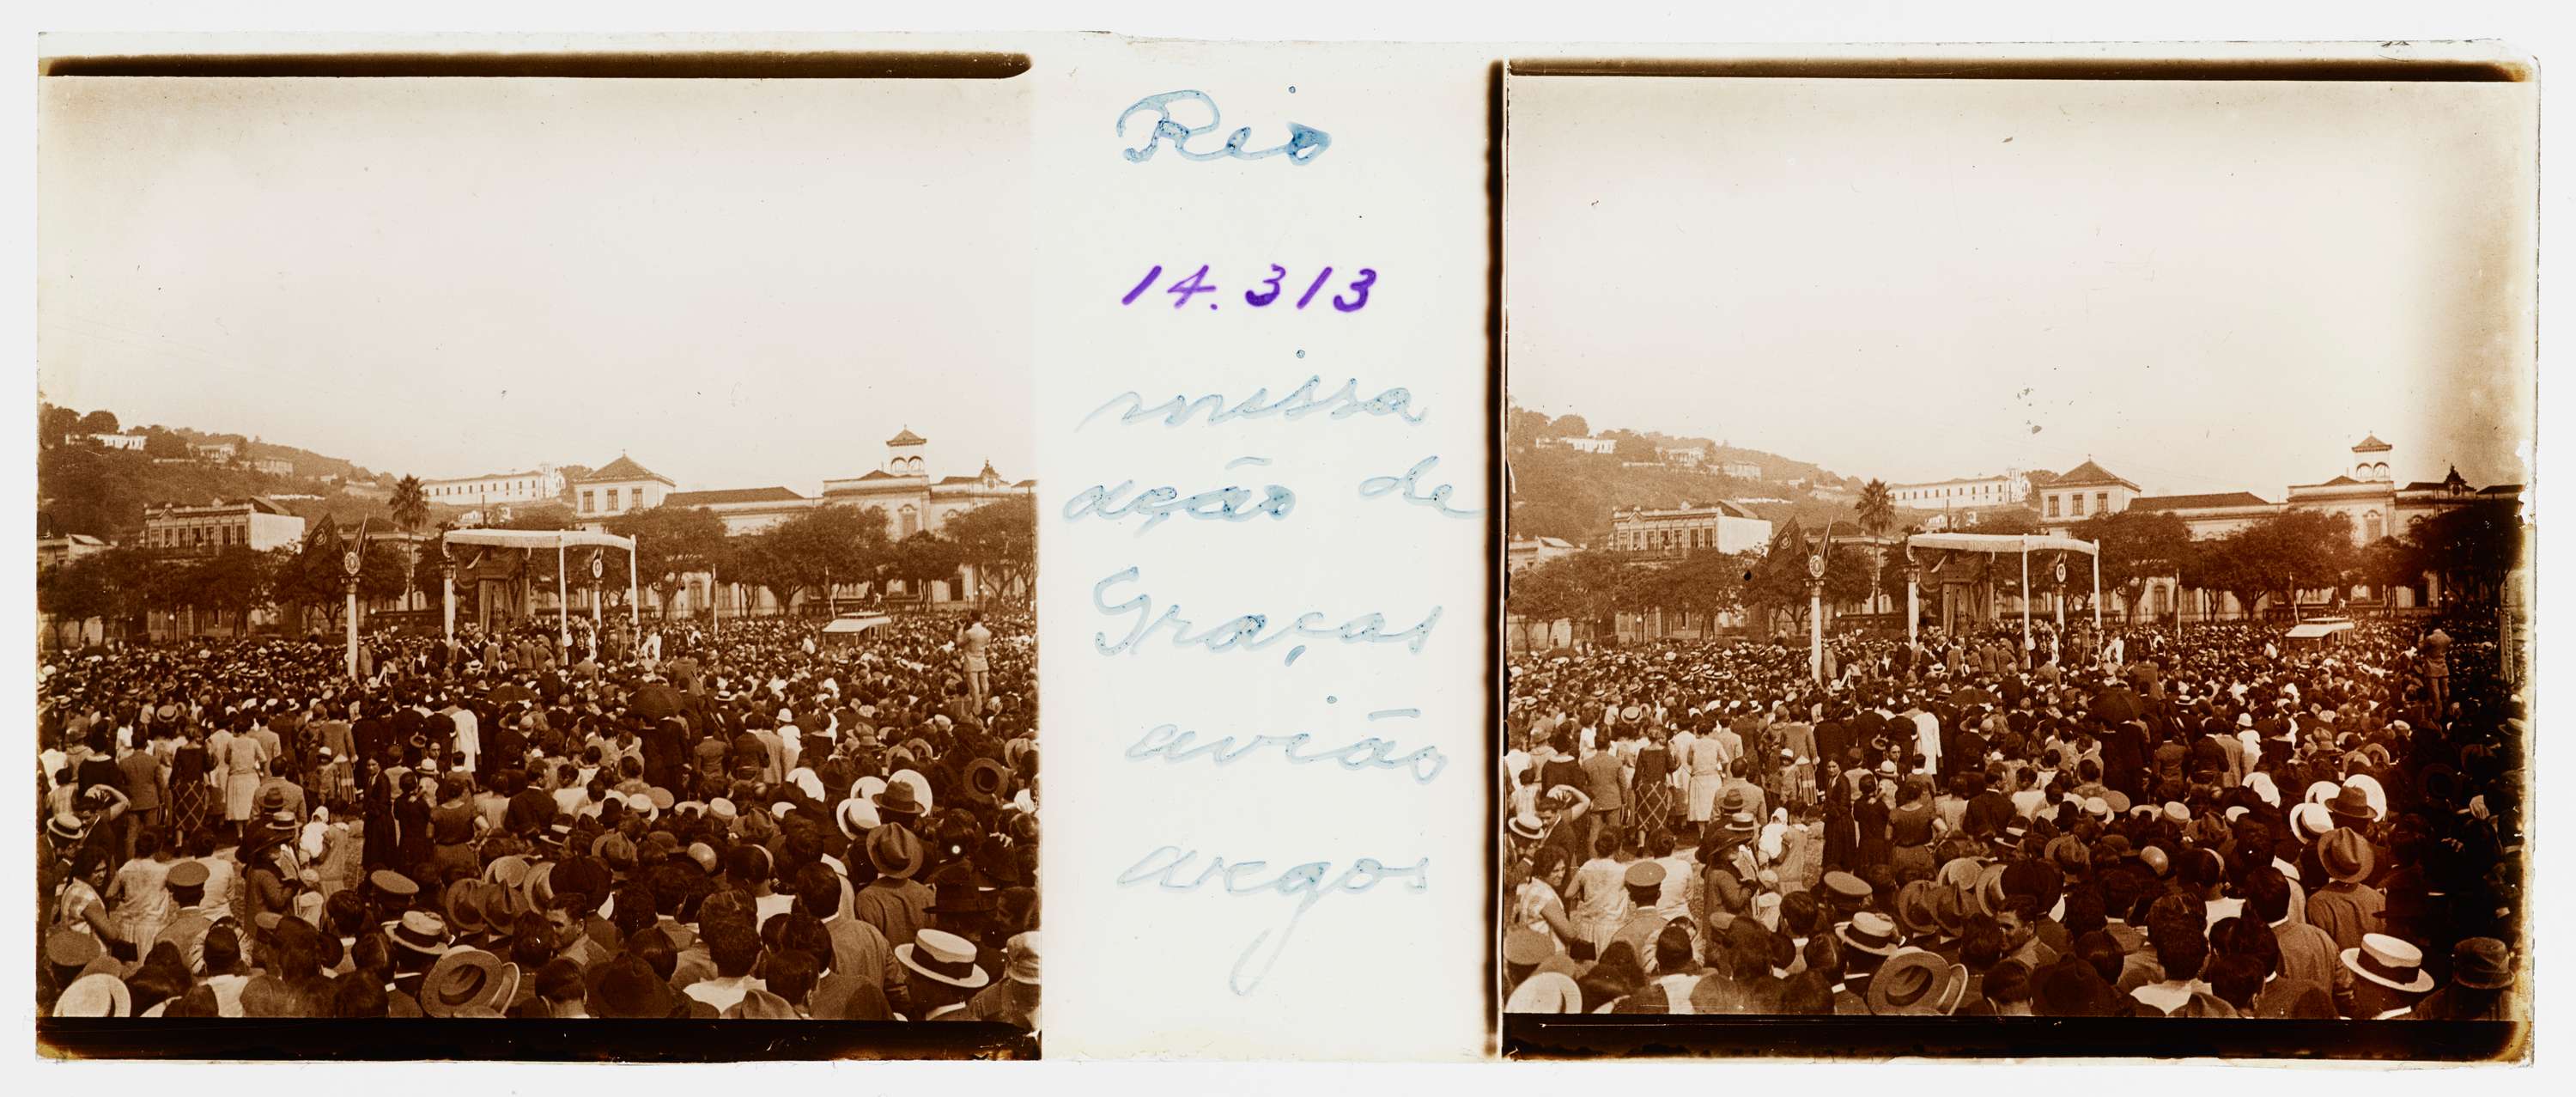 Rio
14.313
missa
ação de
Graças
avião
Argos